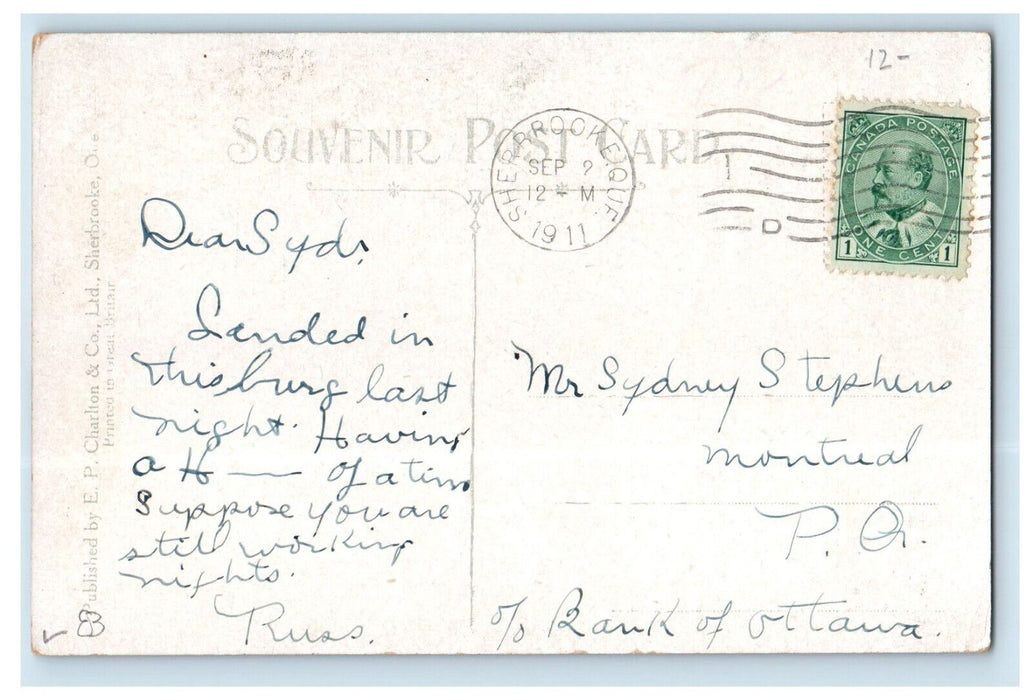 12-
SOUVENIR POST CARD
SHERBROOKE, QUE.
SEP 2
12 M
1911
1
D
CANADA POSTAGE
1 ONE CENT 1
Dear Syd,
Landed in
this burg last
night. Having
a H—— of a time
Suppose you are
still working
nights.
Russ.
Mr Sydney Stephens
Montreal
P. Q.
c/o Bank of Ottawa.
Published by E. P. Charlton & Co., Ltd., Sherbrooke, Q
Printed in Great Britain